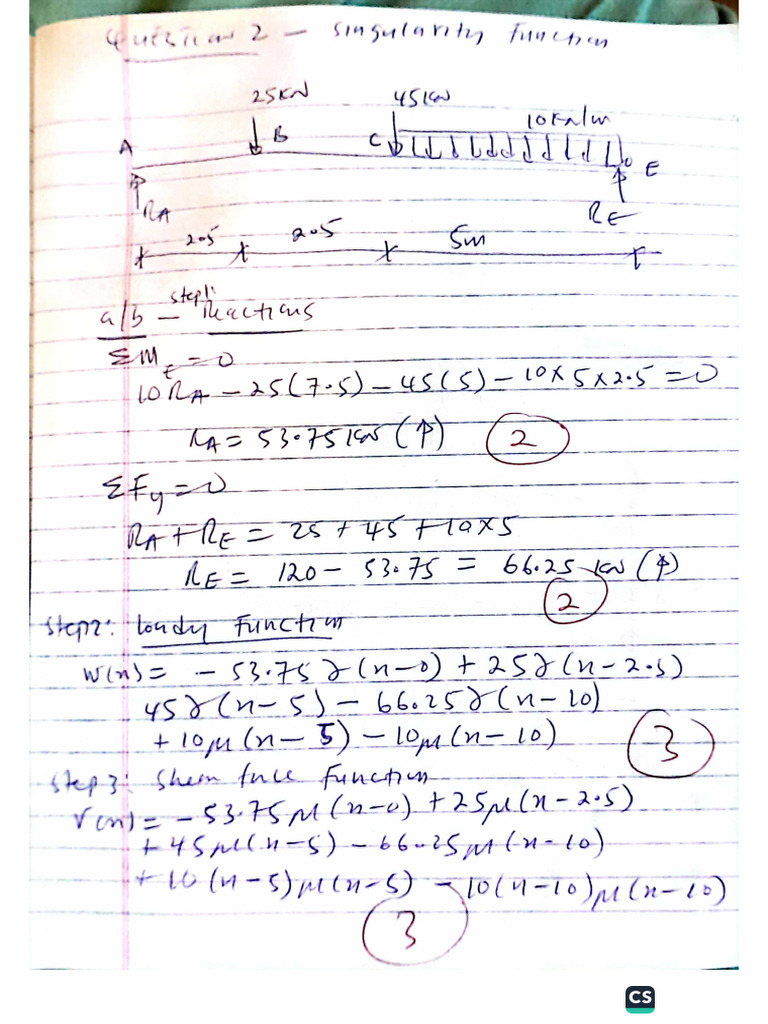 Question 2 – Singularity Function
25KN 45KN
10KN/m
A B C E
RA RE
2.5 2.5 5m
a/b – step1: Reactions
ΣM_E = 0
10RA – 25(7.5) – 45(5) – 10×5×2.5 = 0
RA = 53.75KN (↑) 2
ΣFy = 0
RA + RE = 25 + 45 + 10×5
RE = 120 – 53.75 = 66.25 KN (↑)
2
Step2: loady Function
W(x) = – 53.75γ(x–0) + 25γ(x–2.5)
45γ(x–5) – 66.25γ(x–10)
+ 10μ(x–5) – 10μ(x–10) 3
Step 3: Shear force function
V(x) = –53.75μ(x–0) + 25μ(x–2.5)
+ 45μ(x–5) – 66.25μ(x–10)
+ 10(x–5)μ(x–5) – 10(x–10)μ(x–10)
3
CS